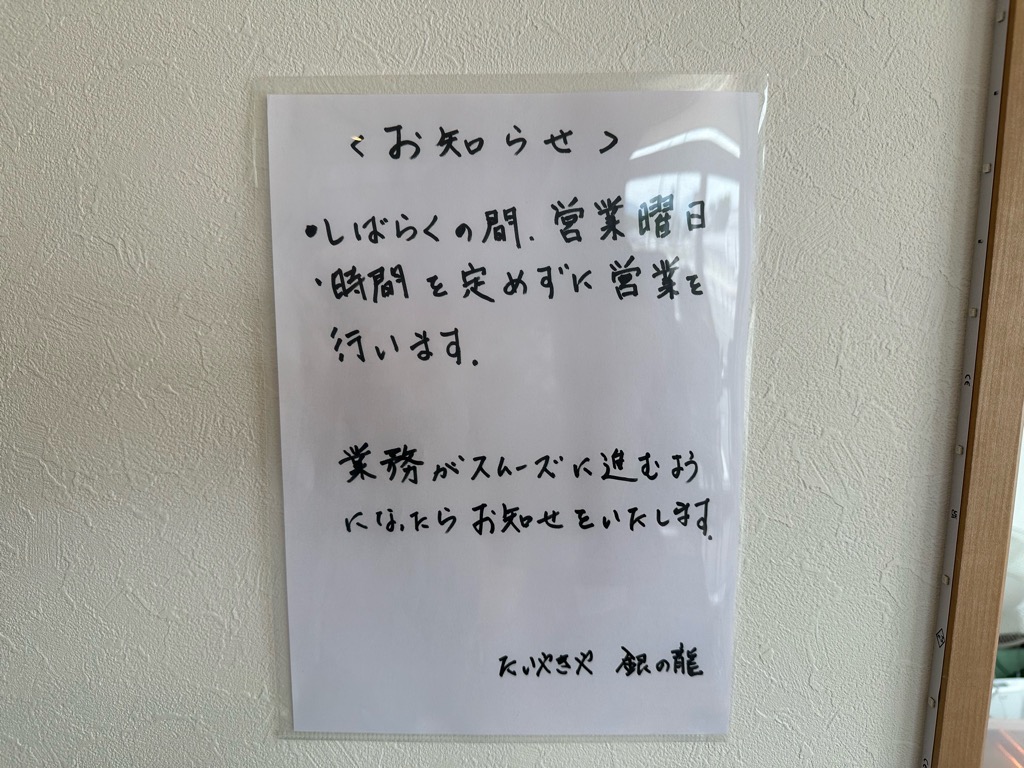 <お知らせ>
・しばらくの間、営業曜日
、時間を定めずに営業を
行います。
業務がスムーズに進むよう
になったらお知らせをいたします。
たいやきや 銀の龍